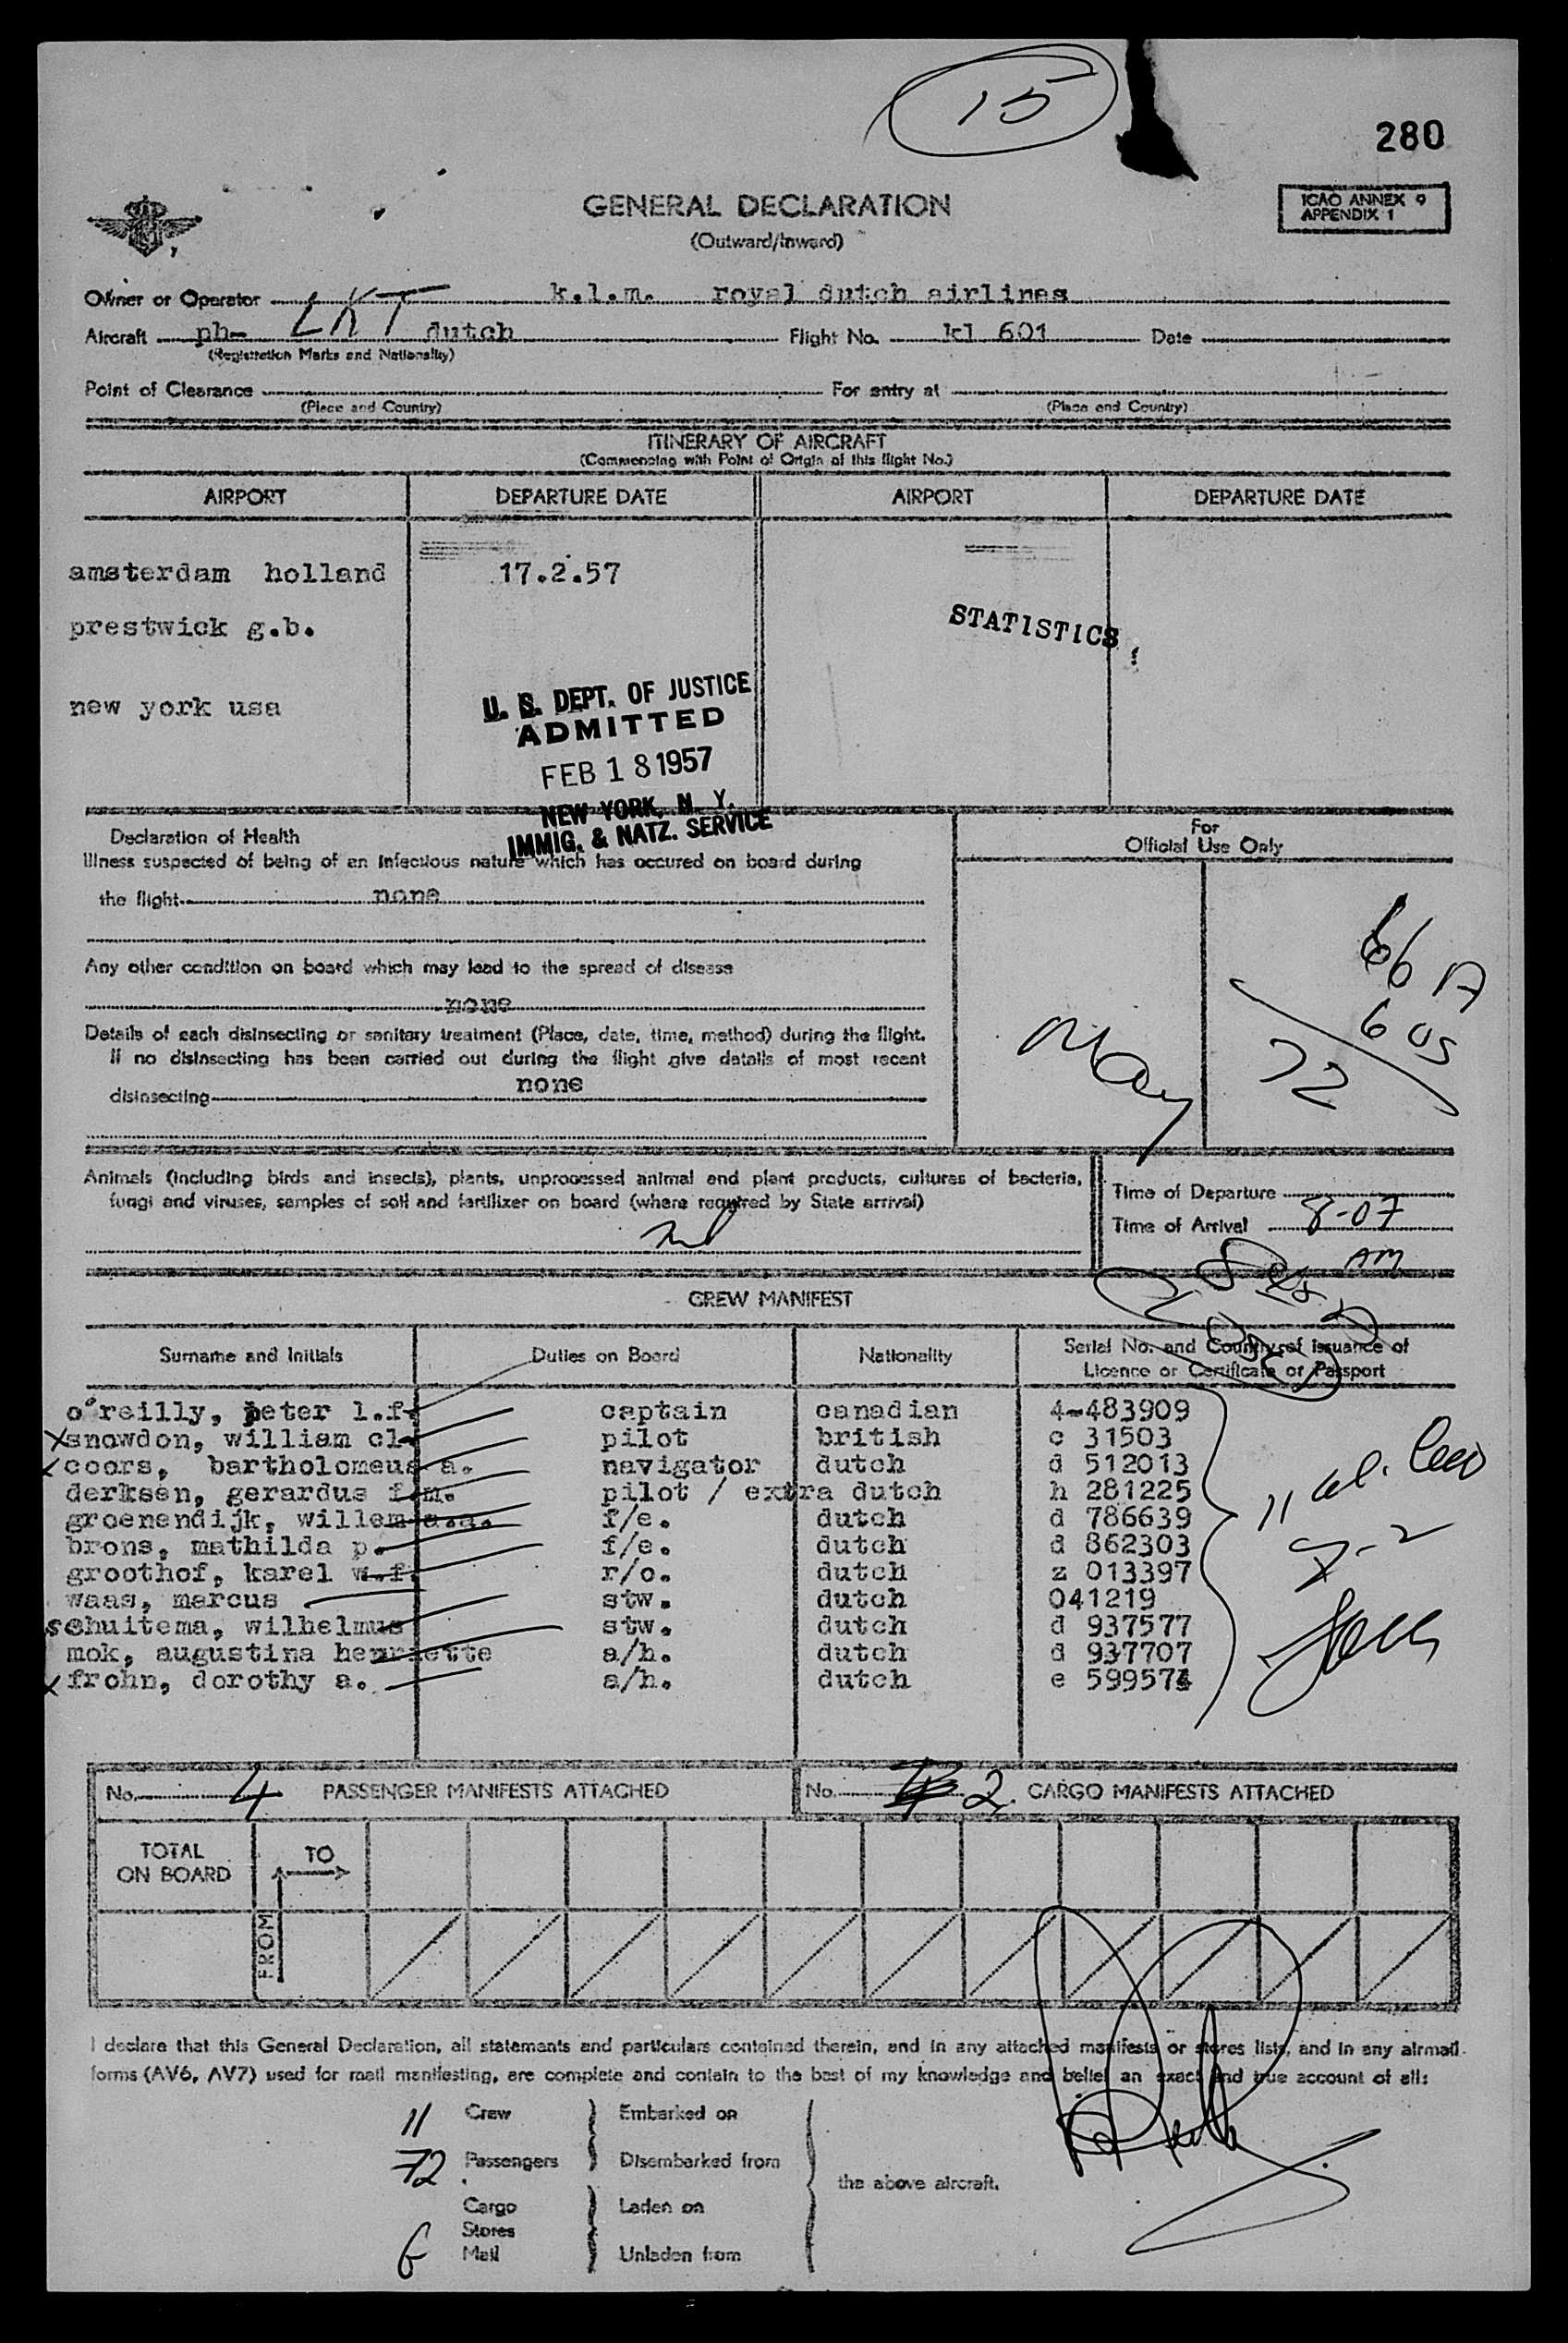 15
280
GENERAL DECLARATION
(Outward/Inward)
ICAO ANNEX 9
APPENDIX 1
Owner or Operator k.l.m. royal dutch airlines
Aircraft ph- LKT dutch Flight No. kl 601 Date
(Registration Marks and Nationality)
Point of Clearance For entry at
(Place and Country) (Place and Country)
ITINERARY OF AIRCRAFT
(Commencing with Point of Origin of this flight No.)
AIRPORT DEPARTURE DATE AIRPORT DEPARTURE DATE
amsterdam holland 17.2.57
prestwick g.b.
STATISTICS
new york usa
U. S. DEPT. OF JUSTICE
ADMITTED
FEB 18 1957
NEW YORK, N. Y.
IMMIG. & NATZ. SERVICE
Declaration of Health
Illness suspected of being of an infectious nature which has occured on board during
the flight none
Any other condition on board which may lead to the spread of disease
none
Details of each disinsecting or sanitary treatment (Place, date, time, method) during the flight.
If no disinsecting has been carried out during the flight give details of most recent
disinsecting none
For
Official Use Only
May
66 A
6 US
72
Animals (including birds and insects), plants, unprocessed animal and plant products, cultures of bacteria,
fungi and viruses, samples of soil and fertilizer on board (where required by State arrival)
Time of Departure
Time of Arrival 8-07
AM
CREW MANIFEST
Surname and Initials Duties on Board Nationality Serial No. and Country of issuance of
Licence or Certificate or Passport
o'reilly, peter l.f. captain canadian 4-483909
x snowdon, william cl. pilot british c 31503
x coors, bartholomeus a. navigator dutch d 512013
derksen, gerardus f.m. pilot / extra dutch h 281225
groenendijk, willem a.a. f/e. dutch d 786639
brons, mathilda p. f/e. dutch d 862303
groothof, karel w.f. r/o. dutch z 013397
waas, marcus stw. dutch 041219
schuitema, wilhelmus stw. dutch d 937577
mok, augustina henriette a/h. dutch d 937707
x frohn, dorothy a. a/h. dutch e 599574
No. 4 PASSENGER MANIFESTS ATTACHED No. 2 CARGO MANIFESTS ATTACHED
TOTAL
ON BOARD
TO
FROM
I declare that this General Declaration, all statements and particulars contained therein, and in any attached manifests or stores lists, and in any airmail
forms (AV6, AV7) used for mail manifesting, are complete and contain to the best of my knowledge and belief an exact and true account of all:
11 Crew Embarked on
72 Passengers Disembarked from
the above aircraft.
Cargo Laden on
Stores
6 Mail Unladen from